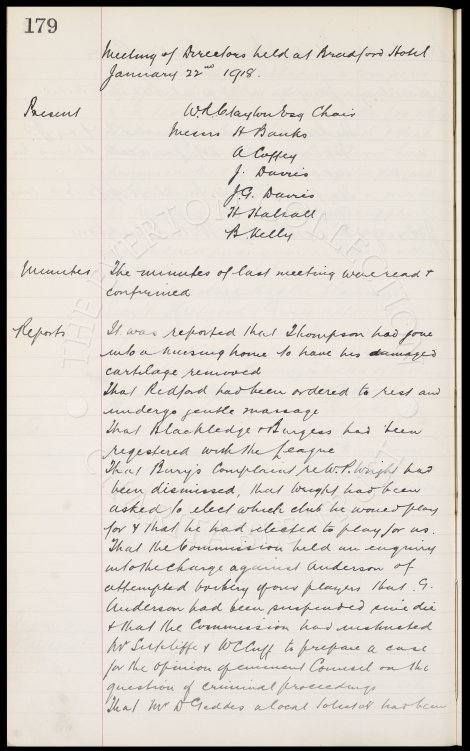 179
Meeting of Directors held at Bradford Hotel
January 22nd 1918.
Present W.R. Clayton Esq Chair
Messrs H Banks
A Coffey
J. Davies
J.G. Davies
H Halsall
B. Kelly
Minutes The minutes of last meeting were read &
confirmed
Reports It was reported that Thompson had gone
into a nursing home to have his damaged
cartilage removed
That Redford had been ordered to rest and
undergo gentle massage
That Blackledge & Burgess had been
registered with the League
That Bury's complaint re W.P. Wright had
been dismissed, that Wright had been
asked to elect which club he would play
for & that he had elected to play for us.
That the Commission held an enquiry
into the charge against Anderson of
attempted bribery of our players that G.
Anderson had been suspended sine die
& that the Commission had instructed
Mr Sutcliffe & W C Cuff to prepare a case
for the opinion of eminent Counsel on the
question of criminal proceedings
That Mr D Geddes a local had been
THE EVERTON COLLECTION